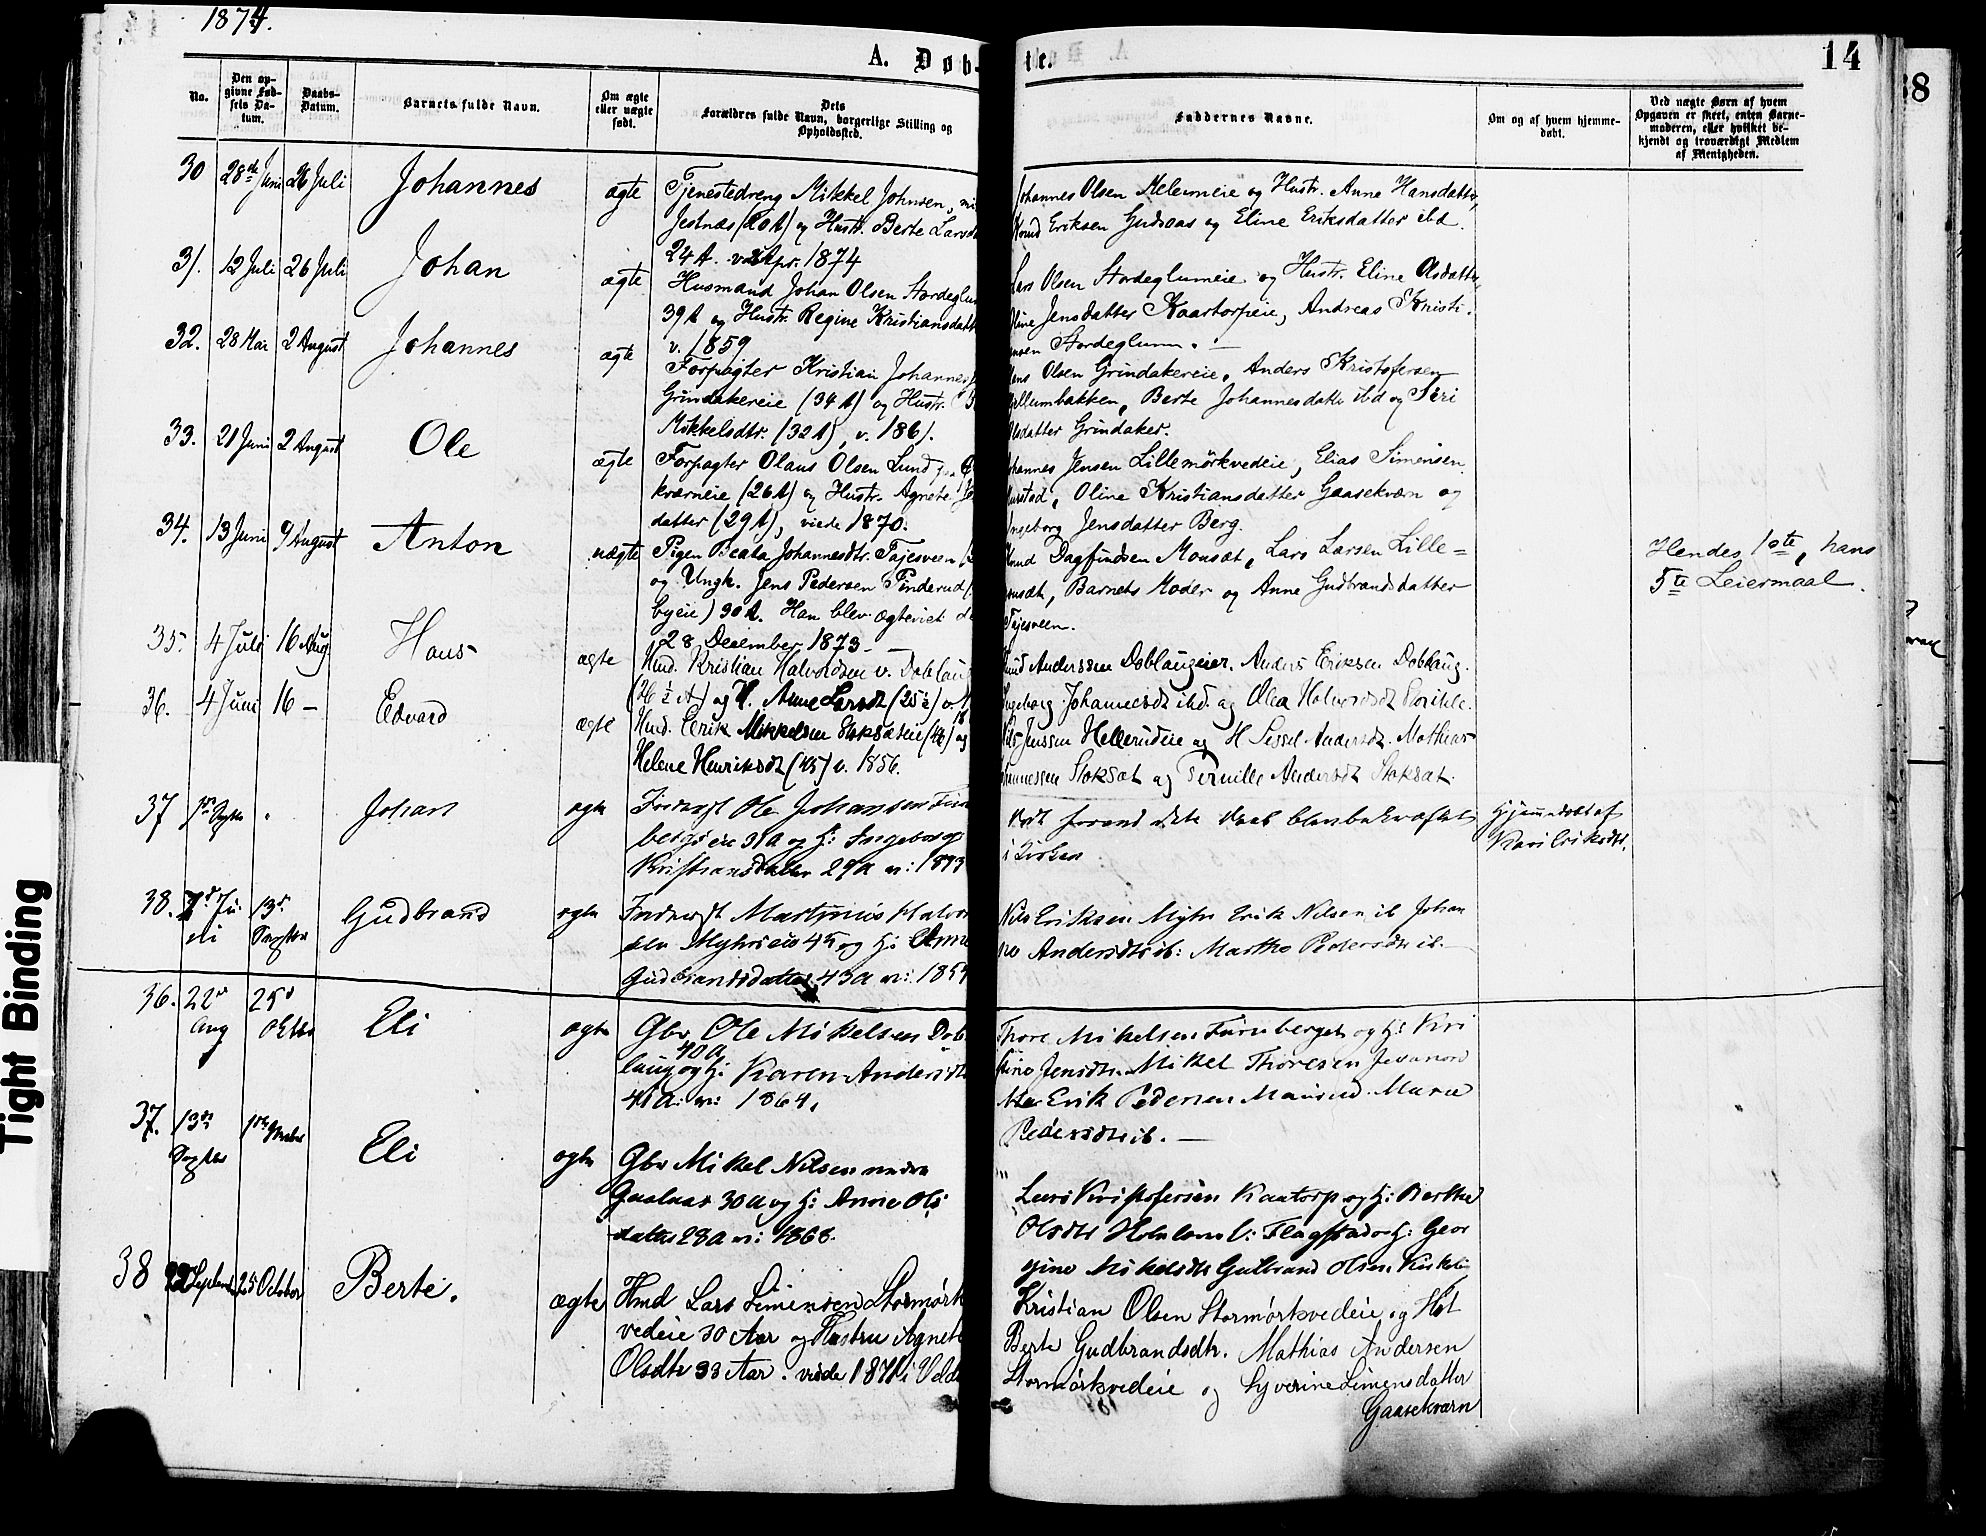 1874.
A. Døb-
te.
14
38
No.
Den op-
givne Fød-
sels Da-
tum.
Daabs-
Datum.
Barnets fulde Navn.
Om ægte
eller uægte
født.
Dets
Forældres fulde Navn, borgerlige Stilling og
Opholdssted.
Faddernes Navne.
Om og af hvem hjemme-
døbt.
Ved uægte Børn af hvem
Opgaven er skeet, enten Barne-
moderen, eller hvilket be-
kjendt og troværdigt Medlem
af Menigheden.
30 28de Juni 26 Juli Johannes ægte Tjenestedreng Mikkel Johnsen,
Jestnæs (20 A) og Hustr. Berte Larsd
24 A. v. Apr. 1874
Johannes Olsen Melumeie og Hustr. Anne Hansdatter,
Knud Eriksen Gudsaas og Eline Eriksdatter ibd.
31. 12 Juli 26 Juli Johan ægte Husmand Johan Olsen Stordeglum
39 A og Hustr. Regine Kristiansdatt
v. 1859
Lars Olsen Stordeglumeie og Hustr. Eline Olsdatter,
Oline Jensdatter Kaartorpeie, Andreas Kristi-
ansen Stordeglum. —
32. 28 Mai 2 August Johannes ægte Forpagter Kristian Johannes
Grindakereie (34 A) og Hustr.
Mikkelsdtr. (32 A), v. 1861.
Hans Olsen Grindakereie, Anders Kristofersen
Gillumbakken, Berte Johannesdatter ibd og Siri
Olsdatter Grindaker.
33. 21 Juni 2 August Ole ægte Forpagter Olaus Olsen Lund
kværneie (26 A) og Hustr. Agnete
datter (29 A), viede 1870.
Johannes Jensen Lillemörkvedeie, Elias Simensen
Oline Kristiansdatter Gaasekværn og
Ingeborg Jensdatter Berg.
34. 13 Juni 9 August Anton uægte Pigen Beata Johannesdtr. Tajesveen
og Ungk. Jens Pedersen Finderud
byeie) 30 A. Han blev ægteviet d
28 December 1873 —
Knud Dagfindsen Monsæt, Lars Larsen Lille=
monsæt, Barnets Moder og Anne Gudbrandsdatter
Tajesveen.
Hendes 1ste, hans
5te Leiermaal.
35. 4 Juli 16 Aug Hans ægte Hmd. Kristian Halvordsen v. Doblaug
(26 ½ A) og H. Anne Larsdt (25 ½) v.
Knud Anderssen Doblaugeier. Anders Eriksen Doblaug.
Ingeborg Johannesdt ibd. og Olea Halvorsdt
36. 4 Juni 16 — Edvard ægte Hmd. Erik Mikkelsen Stoksæteie (44) og
Helene Henriksdt (45) v. 1856.
Nils Jenssen Hellerudeie og H Sissel Andersdt. Mathias
Stoksæt og Pernille Andersdt Stoksæt.
37 1ste Septbr " Johan ægte Inderst Ole Johansen Furu
bergseie 31 A og H: Ingeborg
Kristiansdatter 29 A v: 1873
Død forend dets Daab blev bekræftet
i Kirken
Hjemmedøbt af
Kari Eriksdt.
38. 7d Ju
ni 13de
Septbr Gudbrand ægte Inderst Martinus Halvor
sen Myhrseie 45 og H: Anne
Gudbrandsdatter 43 A v: 1854
Nils Eriksen Myhr Erik Nilsen ib Johan
ne Andersdtr ib: Marthe Pedersdtr ib.
36. 22de
Aug 25d
Oktbr Eli ægte Gbr. Ole Mikelsen Dob
40 A
laug og H: Karen Andersdtr
41 A: v: 1864.
Thore Mikelsen Furuberget og H: Kri
stine Jensdtr. Mikel Thoresen
Erik Pedersen Maurud. Maria
Pedersdtr ib. —
37. 13de
Septbr Eli ægte Gbr Mikel Nilsen nedre
30 A og H: Anne Ols
datter 28 A v: 1868.
Lars Kristofersen Kaatorp og H: Berthe
Olsdtr Flagstad og H: Geor
gine Mikelsdtr Gulbrand Olsen
38 22 Septemb 25 October Berte. ægte Hmd Lars Simensen Stormörk
vedeie 30 Aar og Hustru Agnete
Olsdtr 33 Aar. viede 1871 i Velde
Kristian Olsen Stormörkvedeie og Hst
Berte Gudbrandsdtr. Mathias Andersen
Stormörkvedeie og Syverine Simensdatter
Gaasekværn
Tight Binding